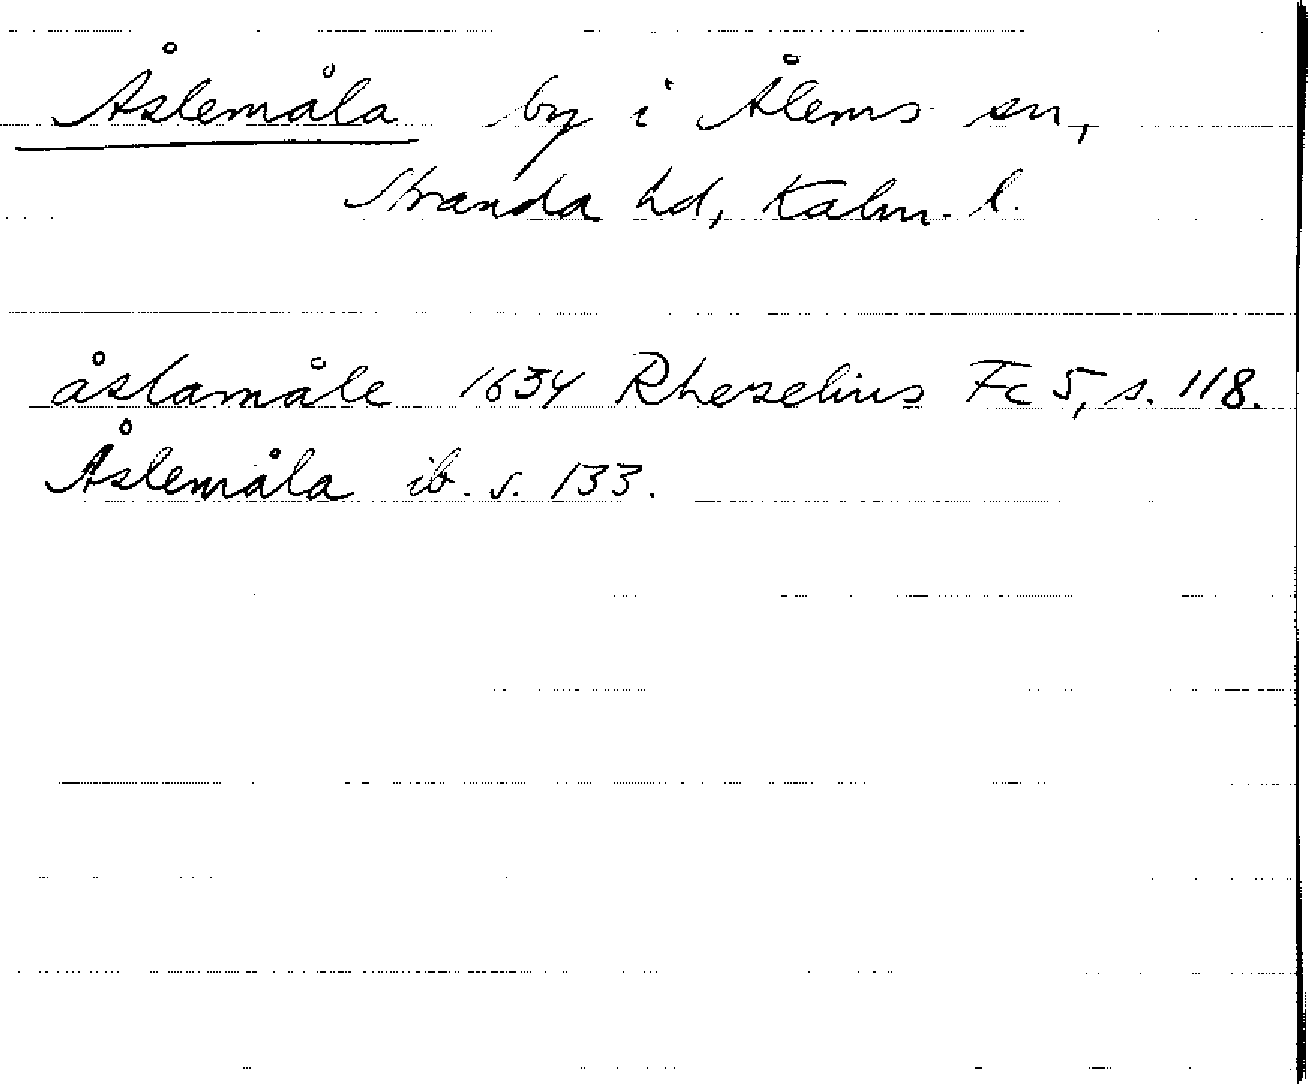 Åslemåla by i Ålems sn,
Stranda hd, Kalm. l.
åslamåle 1634 Rhezelius Fc 5, s. 118.
Åslemåla ib. s. 133.